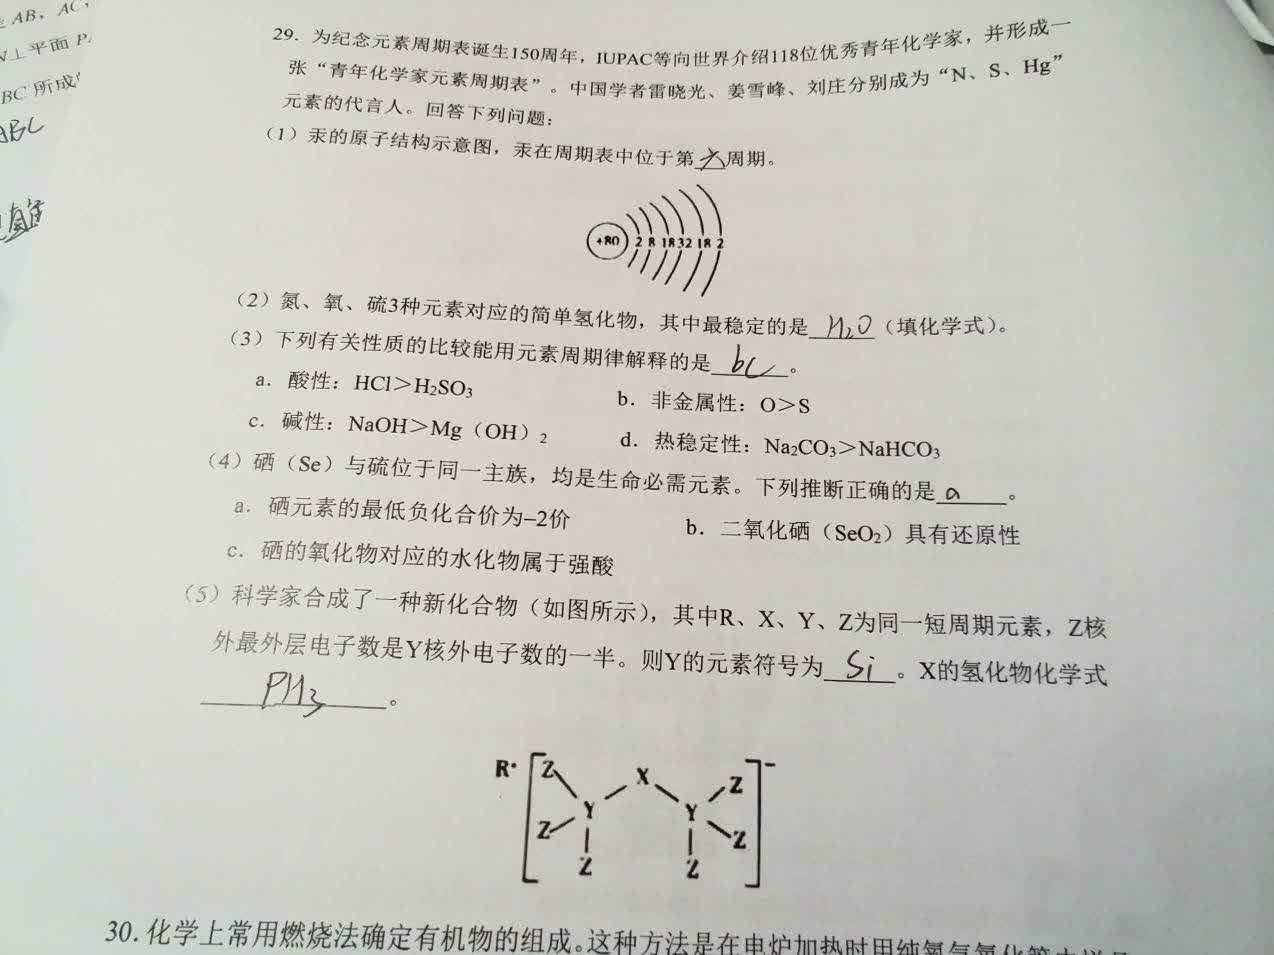 AB，AC，
⊥平面 P
BC 所成
ABC
29．为纪念元素周期表诞生150周年，IUPAC等向世界介绍118位优秀青年化学家，并形成一
张“青年化学家元素周期表”。中国学者雷晓光、姜雪峰、刘庄分别成为“N、S、Hg”
元素的代言人。回答下列问题：
（1）汞的原子结构示意图，汞在周期表中位于第六周期。
+80 2 8 18 32 18 2
（2）氮、氧、硫3种元素对应的简单氢化物，其中最稳定的是 H₂O（填化学式）。
（3）下列有关性质的比较能用元素周期律解释的是 bc 。
a．酸性：HCl＞H₂SO₃
b．非金属性：O＞S
c．碱性：NaOH＞Mg（OH）₂
d．热稳定性：Na₂CO₃＞NaHCO₃
（4）硒（Se）与硫位于同一主族，均是生命必需元素。下列推断正确的是 a 。
a．硒元素的最低负化合价为–2价
b．二氧化硒（SeO₂）具有还原性
c．硒的氧化物对应的水化物属于强酸
（5）科学家合成了一种新化合物（如图所示），其中R、X、Y、Z为同一短周期元素，Z核
外最外层电子数是Y核外电子数的一半。则Y的元素符号为 Si 。X的氢化物化学式
PH₃ 。
R⁺ [ Z X Z ]⁻
Y Y
Z Z
Z Z
30.化学上常用燃烧法确定有机物的组成。这种方法是在电炉加热时用纯氧气氧化管内样品